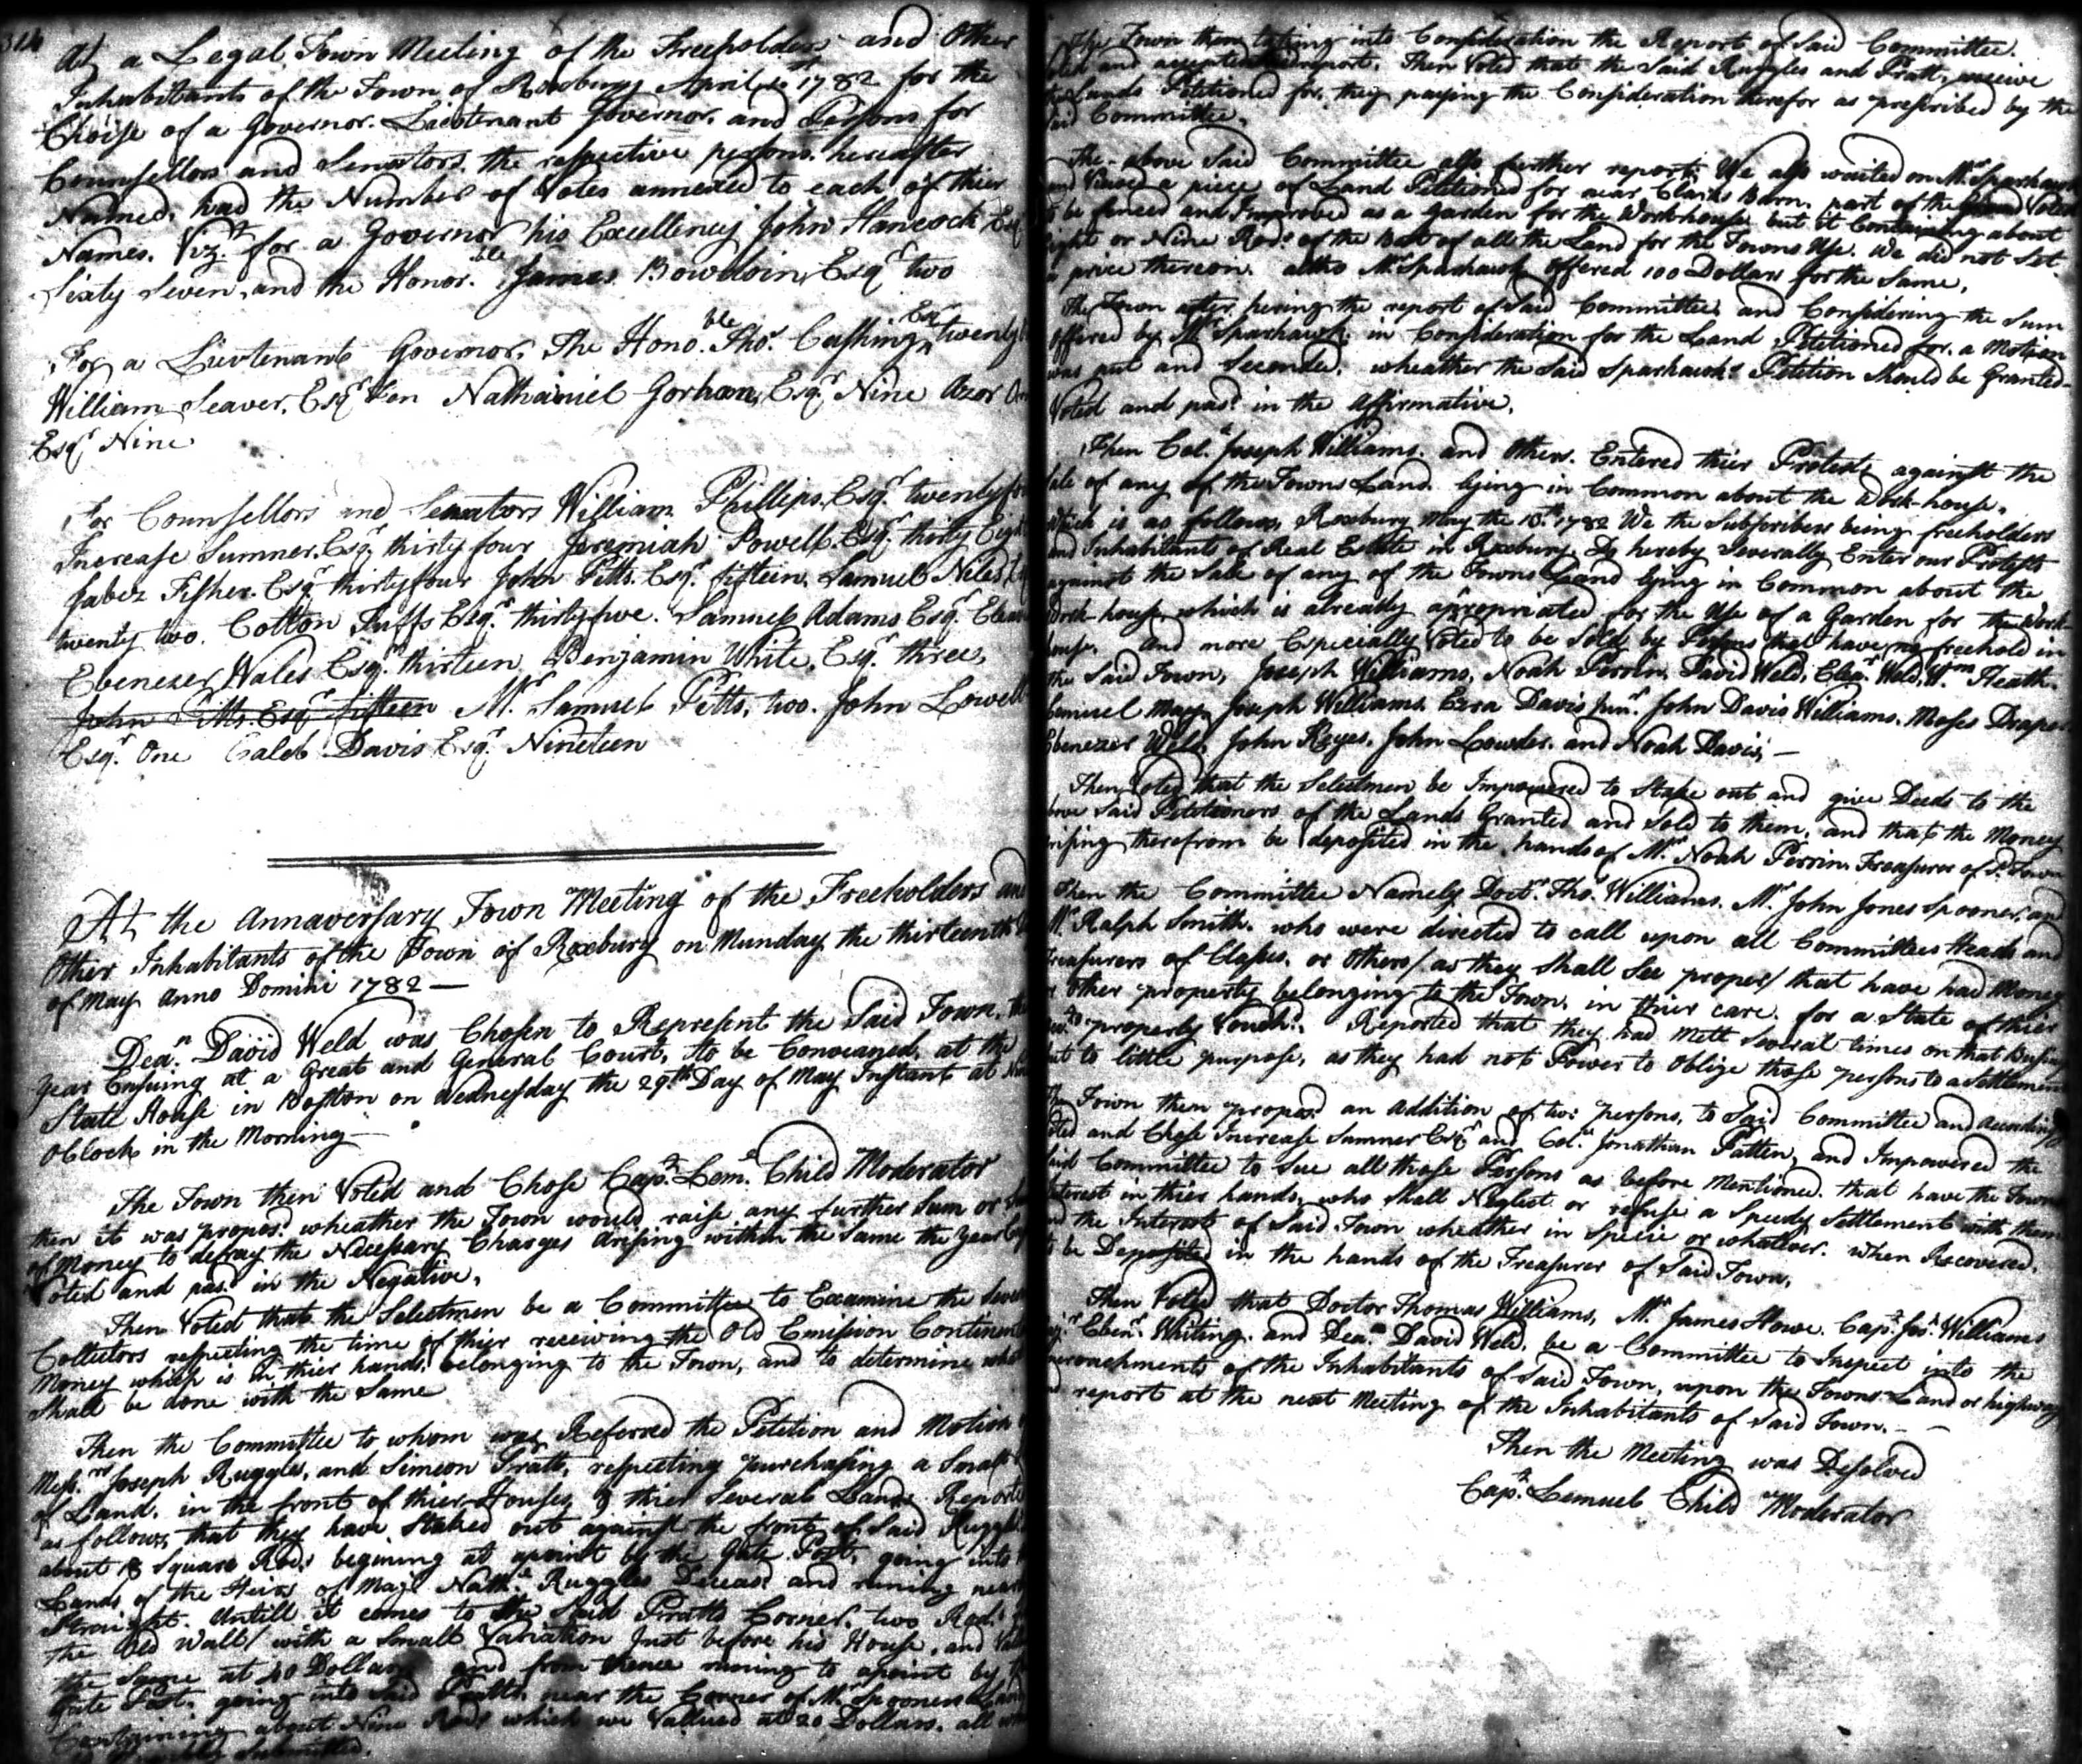 At a Legal Town Meeting of the Freeholders and Other
Inhabitants of the Town of Roxbury April 1st 1782 for the
Choise of a Governor. Lieutenant Governor, and Persons for
Counsellors and Senators. the respective persons hereafter
Named, had the Number of Votes annexed to each of thier
Names. Vizt. for a Governor his Excellency John Hancock Esqr
Sixty Seven, and the Honorble. James Bowdoin, Esqr two
For a Lieutenant Governor, The Honoble. Thos. Cushing Esqr twenty
William Seaver, Esqr ten Nathaniel Gorham, Esqr. Nine Azor
Esqr Nine
For Counsellors and Senators William Phillips, Esqr. twenty
Increase Sumner, Esqr. thirty four Jeremiah Powell, Esqr. thirty Eight
Jabez Fisher. Esqr thirtyfour John Pitts. Esqr. fifteen. Samuel Niles,
twenty two. Cotton Tuffs Esqr. thirtyfive. Samuel Adams Esqr.
Ebenezer Wales Esqr. thirteen Benjamin White, Esqr. three,
John Pitts. Esqr fifteen Mr. Samuel Pitts, two. John Lowell
Esqr. One Caleb Davis Esqr. Nineteen
At the Annaversary Town Meeting of the Freeholders and
Other Inhabitants of the Town of Roxbury on Munday the thirteenth
of May Anno Domini 1782 —
Dean. David Weld was Chosen to Represent the Said Town, the
Year Ensuing at a Great and General Court, to be Conveaned, at the
State House in Boston on Wednesday the 29th Day of May Instant at
OClock in the Morning —
The Town then Voted and Chose Capt. Lem. Child Moderator
then it was propos'd wheather the Town would raise any further Sum or
of Money to defray the Necessary Charges arising within the Same the Year
Voted and pasd in the Negative,
Then Voted that the Selectmen be a Committee to Examine the
Collectors respecting the time of thier receiving the Old Emission
Money which is in thier hands, belonging to the Town, and to determine
Shall be done with the Same
Then the Committee to whom was Referred the Petition and Motion
Messrs Joseph Ruggles, and Simeon Pratt, respecting purchasing a Small
of Land, in the front of thier Houses, & thier Several Lands Reported
as follows, that they have Staked out against the front of Said
about 18 Square Rods begining at apoint by the Gate Post, going into
Lands of the Heirs of Majr Nathl. Ruggles Deceasd and runing near
Straight. Untill it comes to the Said Pratts Corner, two Rods
the Old Wall, with a Small Variation Just before his House, and
the Same at 40 Dollars and from thence runing to apoint by
Gate Post, going into Said Pratts, near the Corner of Mr Spooners
Containing about Nine Rods which we Vallued at 20 Dollars. all
Submitted.
The Town then taking into Consideration the Report of Said Committee.
and accepted report. Then Voted that the Said Ruggles and Pratt, receive
Lands Petitioned for, they paying the Consideration therefor as prescribed by the
Said Committee,
The above Said Committee also further report, We also waited on Mr Sparhawk
and Viewed a piece of Land Petitioned for near Clarks Barn. part of the Voted
to be fenced and Improved as a Garden for the Workhouse but it Containing about
Eight or Nine Rods of the Best of all the Land for the Towns Use. We did not Set
a price thereon. altho Mr Sparhawk offered 100 Dollars for the Same.
The Town after hering the report of Said Committee, and Considering the Sum
offered by Mr Sparhawk in Consideration for the Land Petitioned for. a Motion
was put and Seconded, wheather the Said Sparhawks Petition Should be Granted
Voted and pasd in the Affirmative.
Then Coll. Joseph Williams. and Others. Entered thier Protest against the
Sale of any of the Towns Land lying in Common about the Work-house,
Which is as follows, Roxbury May the 13th 1782 We the Subscribers being freeholders
and Inhabitants of Real Estate in Roxbury. Do hereby Severally Enter our Protests
against the Sale of any of the Towns Land lying in Common about the
Work-house which is already apropriated for the Use of a Garden for the Work-
house. And more Especially Voted to be Sold by Persons that have no freehold in
the Said Town, Joseph Williams, Noah Perrin, David Weld, Eleazr. Weld, Wm. Heath.
Samuel May, Joseph Williams. Ezra Davis junr. John Davis Williams. Moses Draper
Ebenezer Weld, John Keyes. John Lowder. and Noah Davis, —
Then Voted that the Selectmen be Impowered to Stake out and give Deeds to the
above Said Petitioners of the Lands Granted and Sold to them, and that the Money
arising therefrom be deposited in the hands of Mr. Noah Perrin Treasurer of Sd. Town
Then the Committee Namely Doctr. Thos. Williams. Mr. John Jones Spooner. and
Mr Ralph Smith. who were directed to call upon all Committees Heads and
Treasurers of Classes. or Others/ as they Shall See proper/ that have had Money
or Other property belonging to the Town, in thier care. for a State of thier
properly Vouchd. Reported that they had Mett Several times on that Business
but to little purpose, as they had not Power to Oblige those persons to a Settlement
The Town then proposd an addition of two persons, to Said Committee and
Voted and Chose Increase Sumner Esqr and Coll. Jonathan Patten, and Impowered the
Said Committee to Sue all those Persons as before Mentioned. that have the Towns
Interest in thier hands, who Shall Neglect or refuse a Speedy Settlement with them
and the Interest of Said Town wheather in Specie or whatever. when Recovered.
to be Deposited in the hands of the Treasurer of Said Town,
Then Voted that Doctor Thomas Williams, Mr. James Howe. Capt. Jos. Williams
Ebenr. Whiting. and Dean David Weld. be a Committee to Inspect into the
Encroachments of the Inhabitants of Said Town, upon the Towns Land or highways
and report at the next Meeting of the Inhabitants of Said Town. —
Then the Meeting was Desolved
Capt. Lemuel Child Moderator